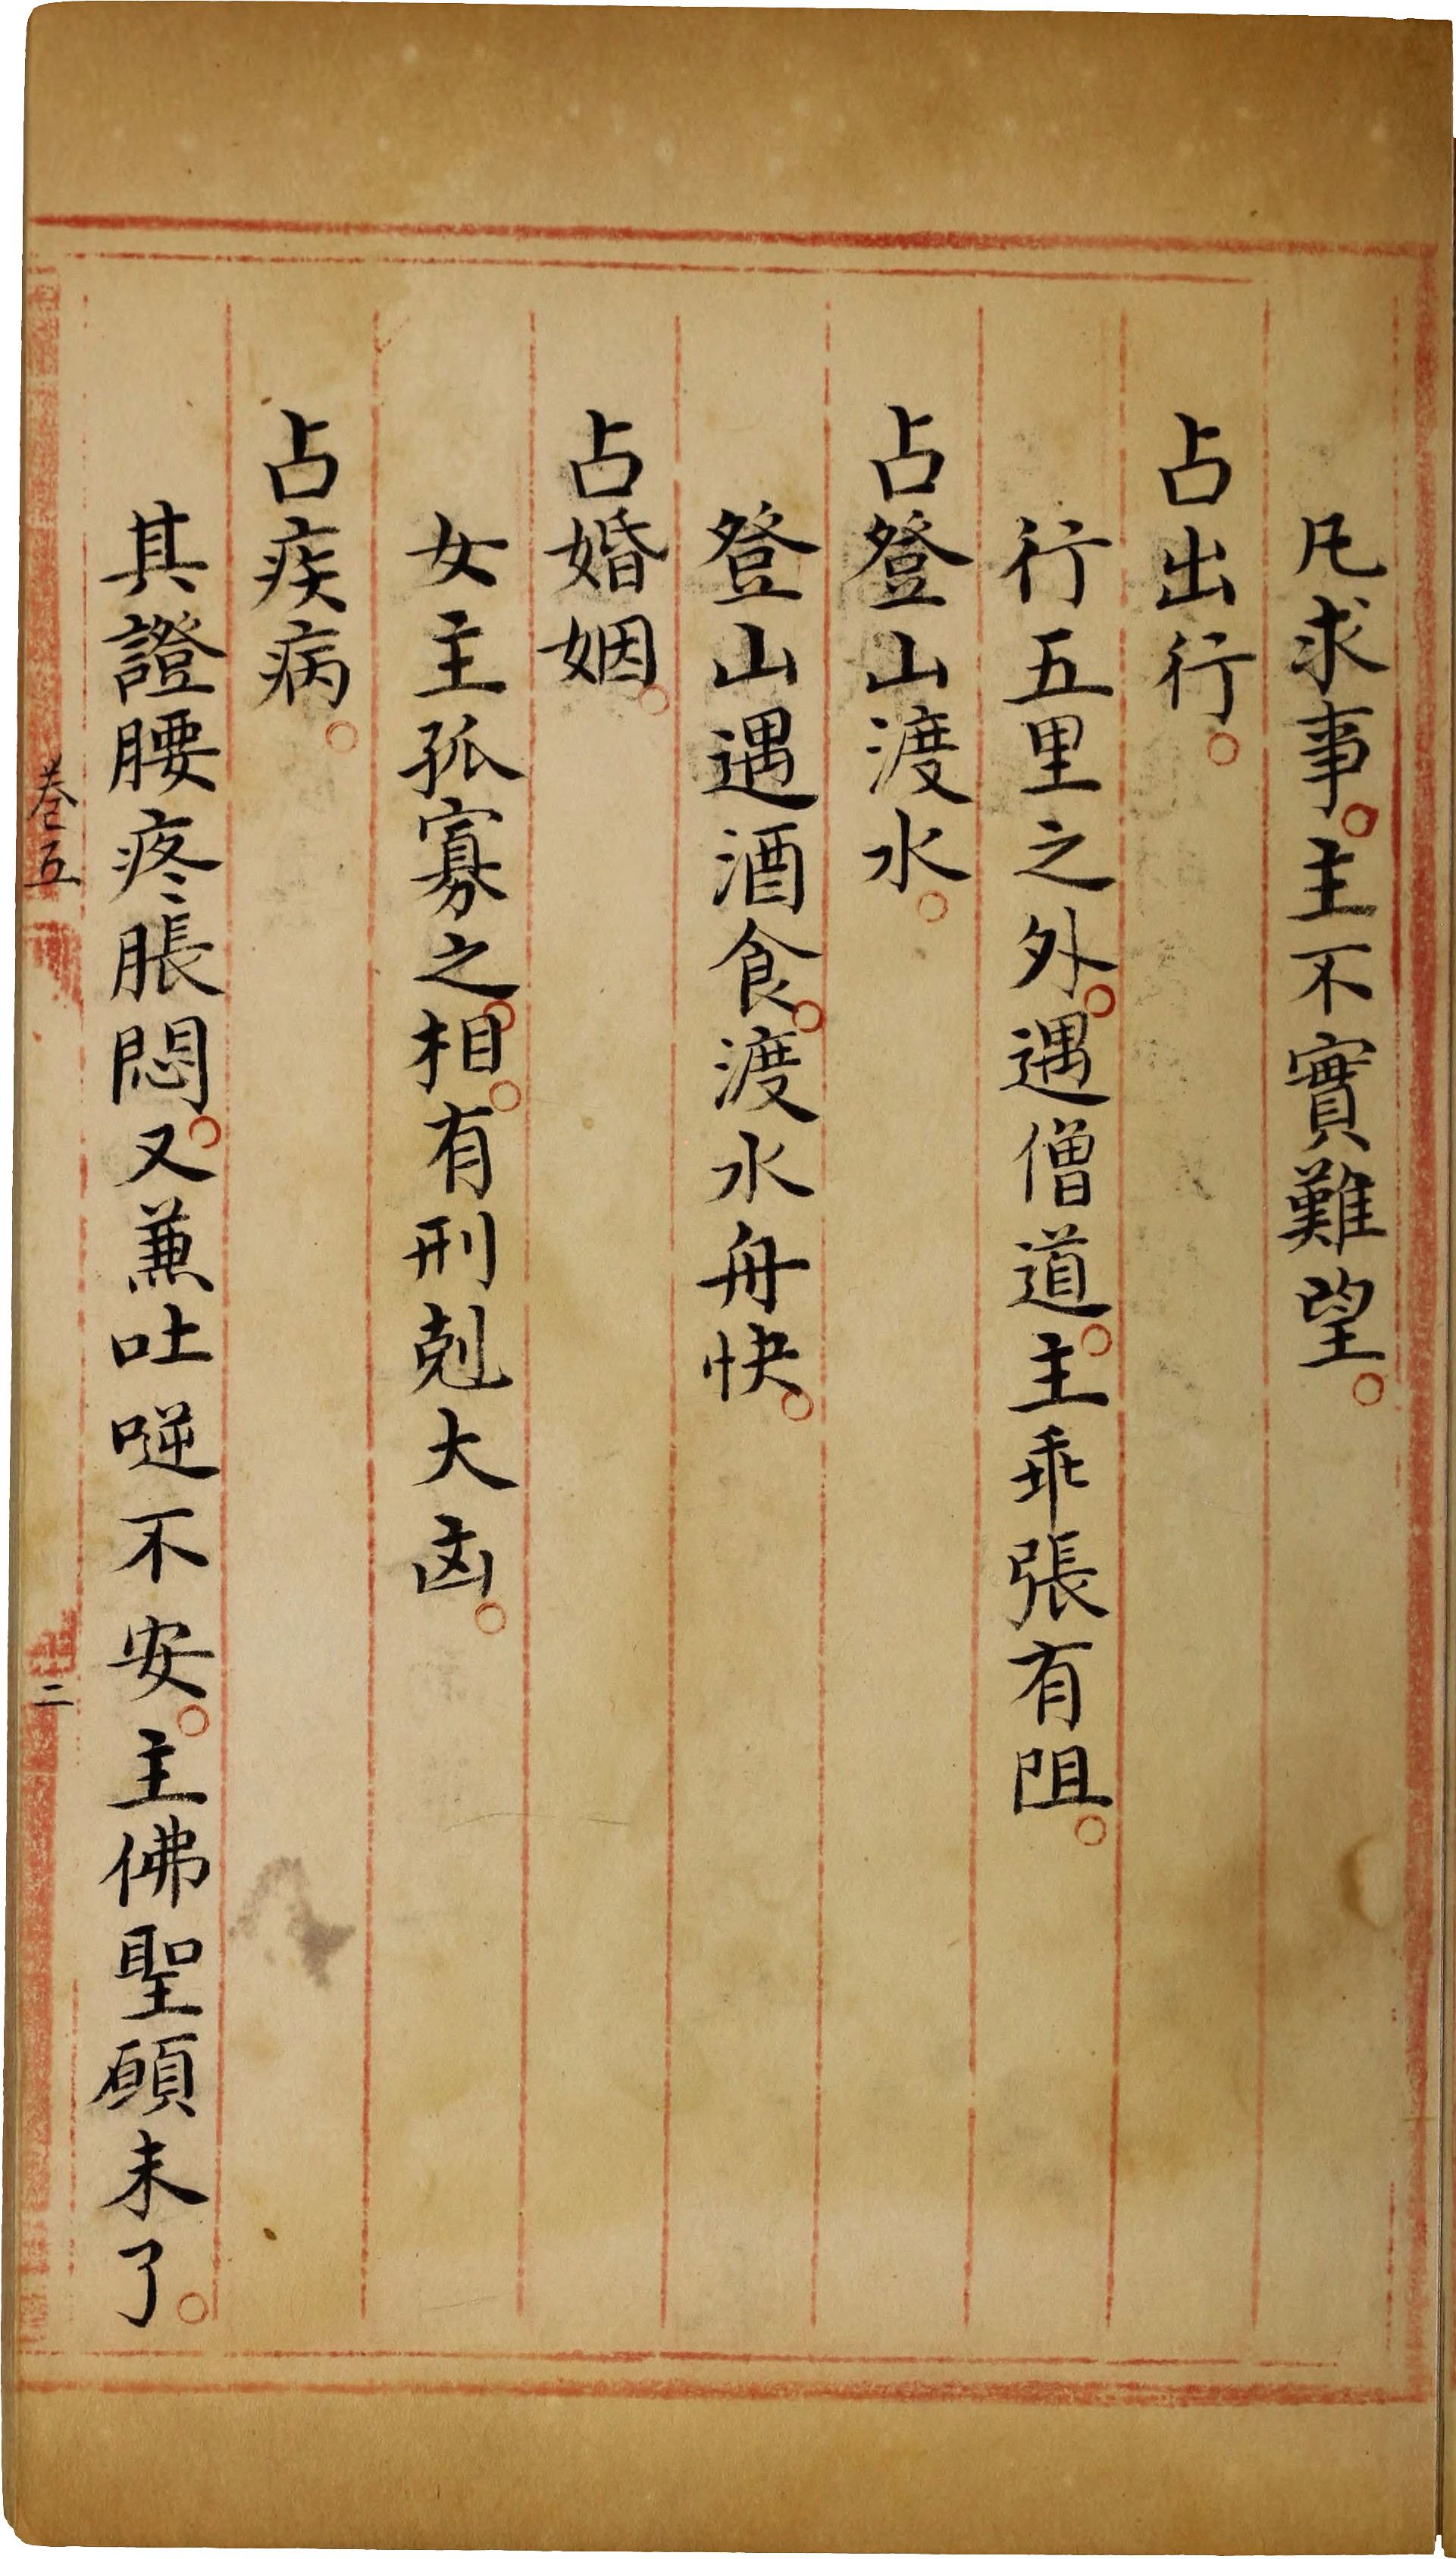 凡求事。主不實難望。
占出行。
行五里之外。遇僧道。主乖張有阻。
占登山渡水。
登山遇酒食。渡水舟快。
占婚姻。
女主孤寡之。相。有刑剋大凶。
占疾病。
其證腰疼脹悶。又兼吐逆不安。主佛聖願未了。
卷五
二